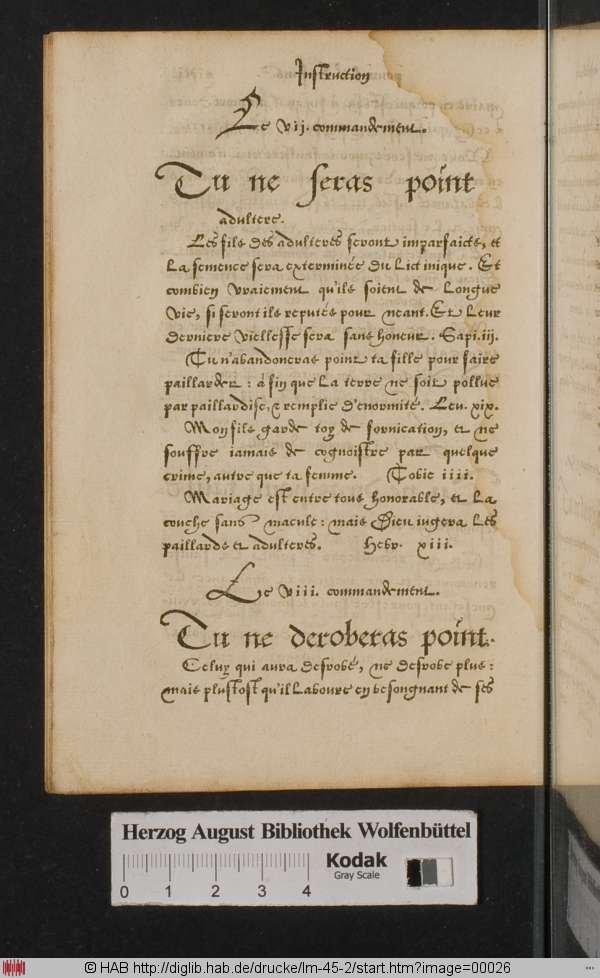 Instruction
Le VII. commandement.
Tu ne seras point
adultere.
Les filz des adulteres seront imparfaictz, et
La semence sera exterminée du Lict inique. Et
combien vraiement qu'ilz soient de Longue
vie, si seront ilz reputés pour neant. Et Leur
derniere viellesse sera sans honeur. Sapi. iii.
Tu n'abandoneras point ta fille pour faire
paillarder: à fin que La terre ne soit pollue
par paillardise, & remplie d'enormité. Leu. xix.
Mon filz garde toy de fornication, et ne
souffre iamais de cognoistre par quelque
crime, autre que ta femme. Tobie iiii.
Mariage est entre tous honorable, et La
couche sans macule: mais Dieu iugera Les
paillardz et adulteres. Hebr. xiii.
Le VIII. commandement.
Tu ne deroberas point.
Celuy qui aura desrobé, ne desrobe plus:
mais plustost qu'il Laboure en besongnant de ses
Herzog August Bibliothek Wolfenbüttel
0 1 2 3 4
Kodak
Gray Scale
© HAB http://diglib.hab.de/drucke/lm-45-2/start.htm?image=00026